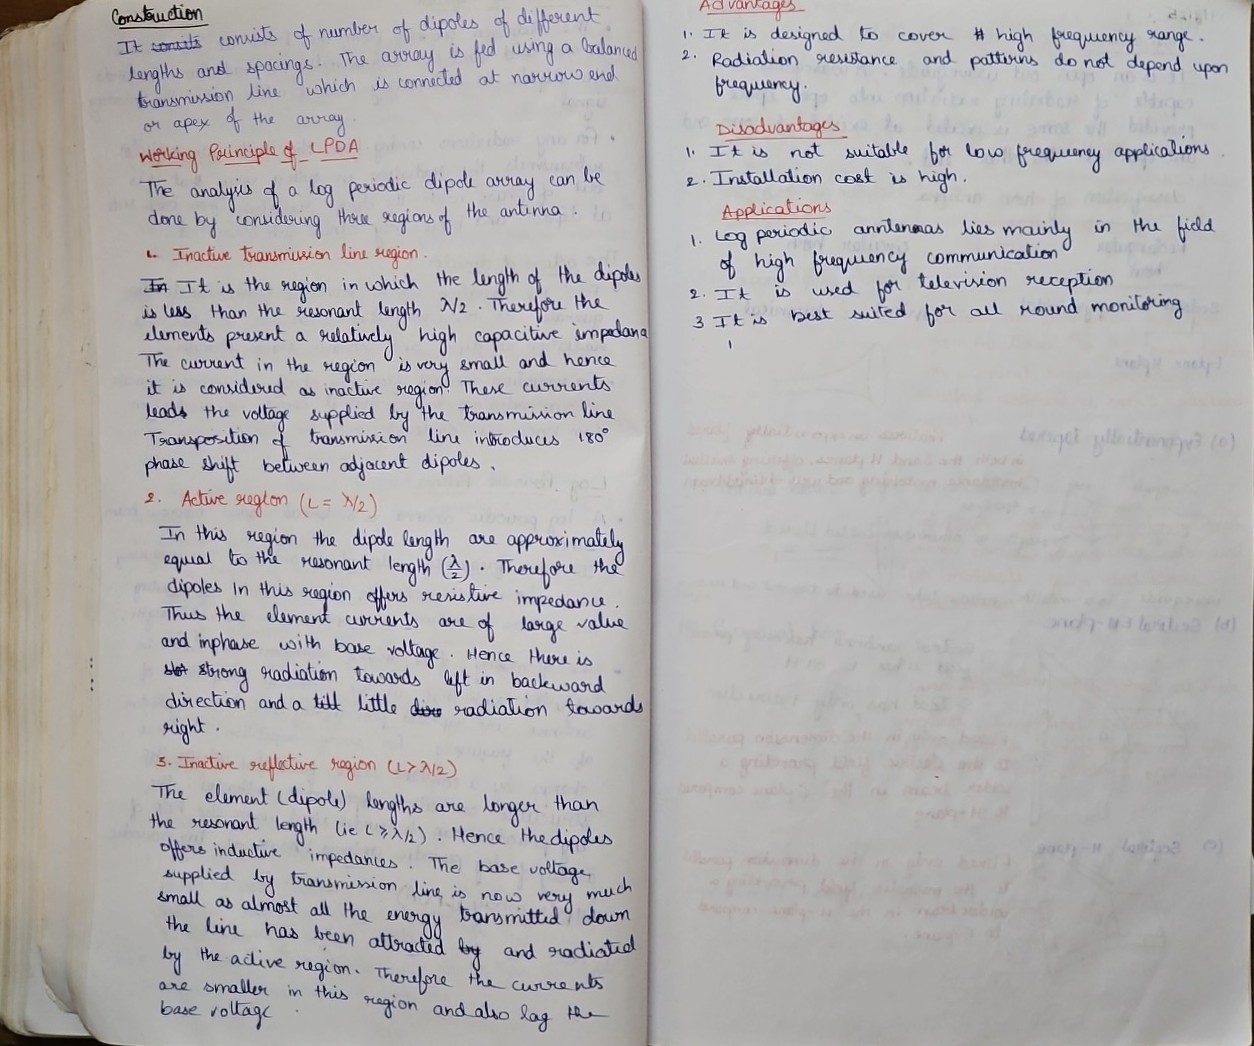 Construction
It consists consists of number of dipoles of different
lengths and spacings. The array is fed using a balanced
transmission line which is connected at narrow end
or apex of the array.
Working Principle of LPDA
The analysis of a log periodic dipole array can be
done by considering three regions of the antinna.
1. Inactive transmission line region.
In It is the region in which the length of the dipoles
is less than the resonant length λ/2. Therefore the
elements present a relatively high capacitive impedana
The current in the region is very small and hence
it is considered as inactive region. These currents
leads the voltage supplied by the transmission line
Transposition of transmission line introduces 180°
phase shift between adjacent dipoles.
2. Active region (L = λ/2)
In this region the dipole length are approximately
equal to the resonant length (λ/2). Therefore the
dipoles in this region offers resistive impedance.
Thus the element currents are of large value
and inphase with base voltage. Hence there is
strong radiation towards left in backward
direction and a little radiation towards
right.
3. Inactive reflective region (L > λ/2)
The element (dipole) lengths are longer than
the resonant length (ie L ⩾ λ/2). Hence the dipoles
offers inductive impedances. The base voltage
supplied by transmission line is now very much
small as almost all the energy transmitted down
the line has been attracted by and radiated
by the active region. Therefore the currents
are smaller in this region and also lag the
base voltage.
Advantages
1. It is designed to cover high frequency range.
2. Radiation resistance and patterns do not depend upon
frequency.
Disadvantages
1. It is not suitable for low frequency applications.
2. Installation cost is high.
Applications
1. Log periodic anntennas lies mainly in the field
of high frequency communication
2. It is used for television reception
3 It is best suited for all round monitoring